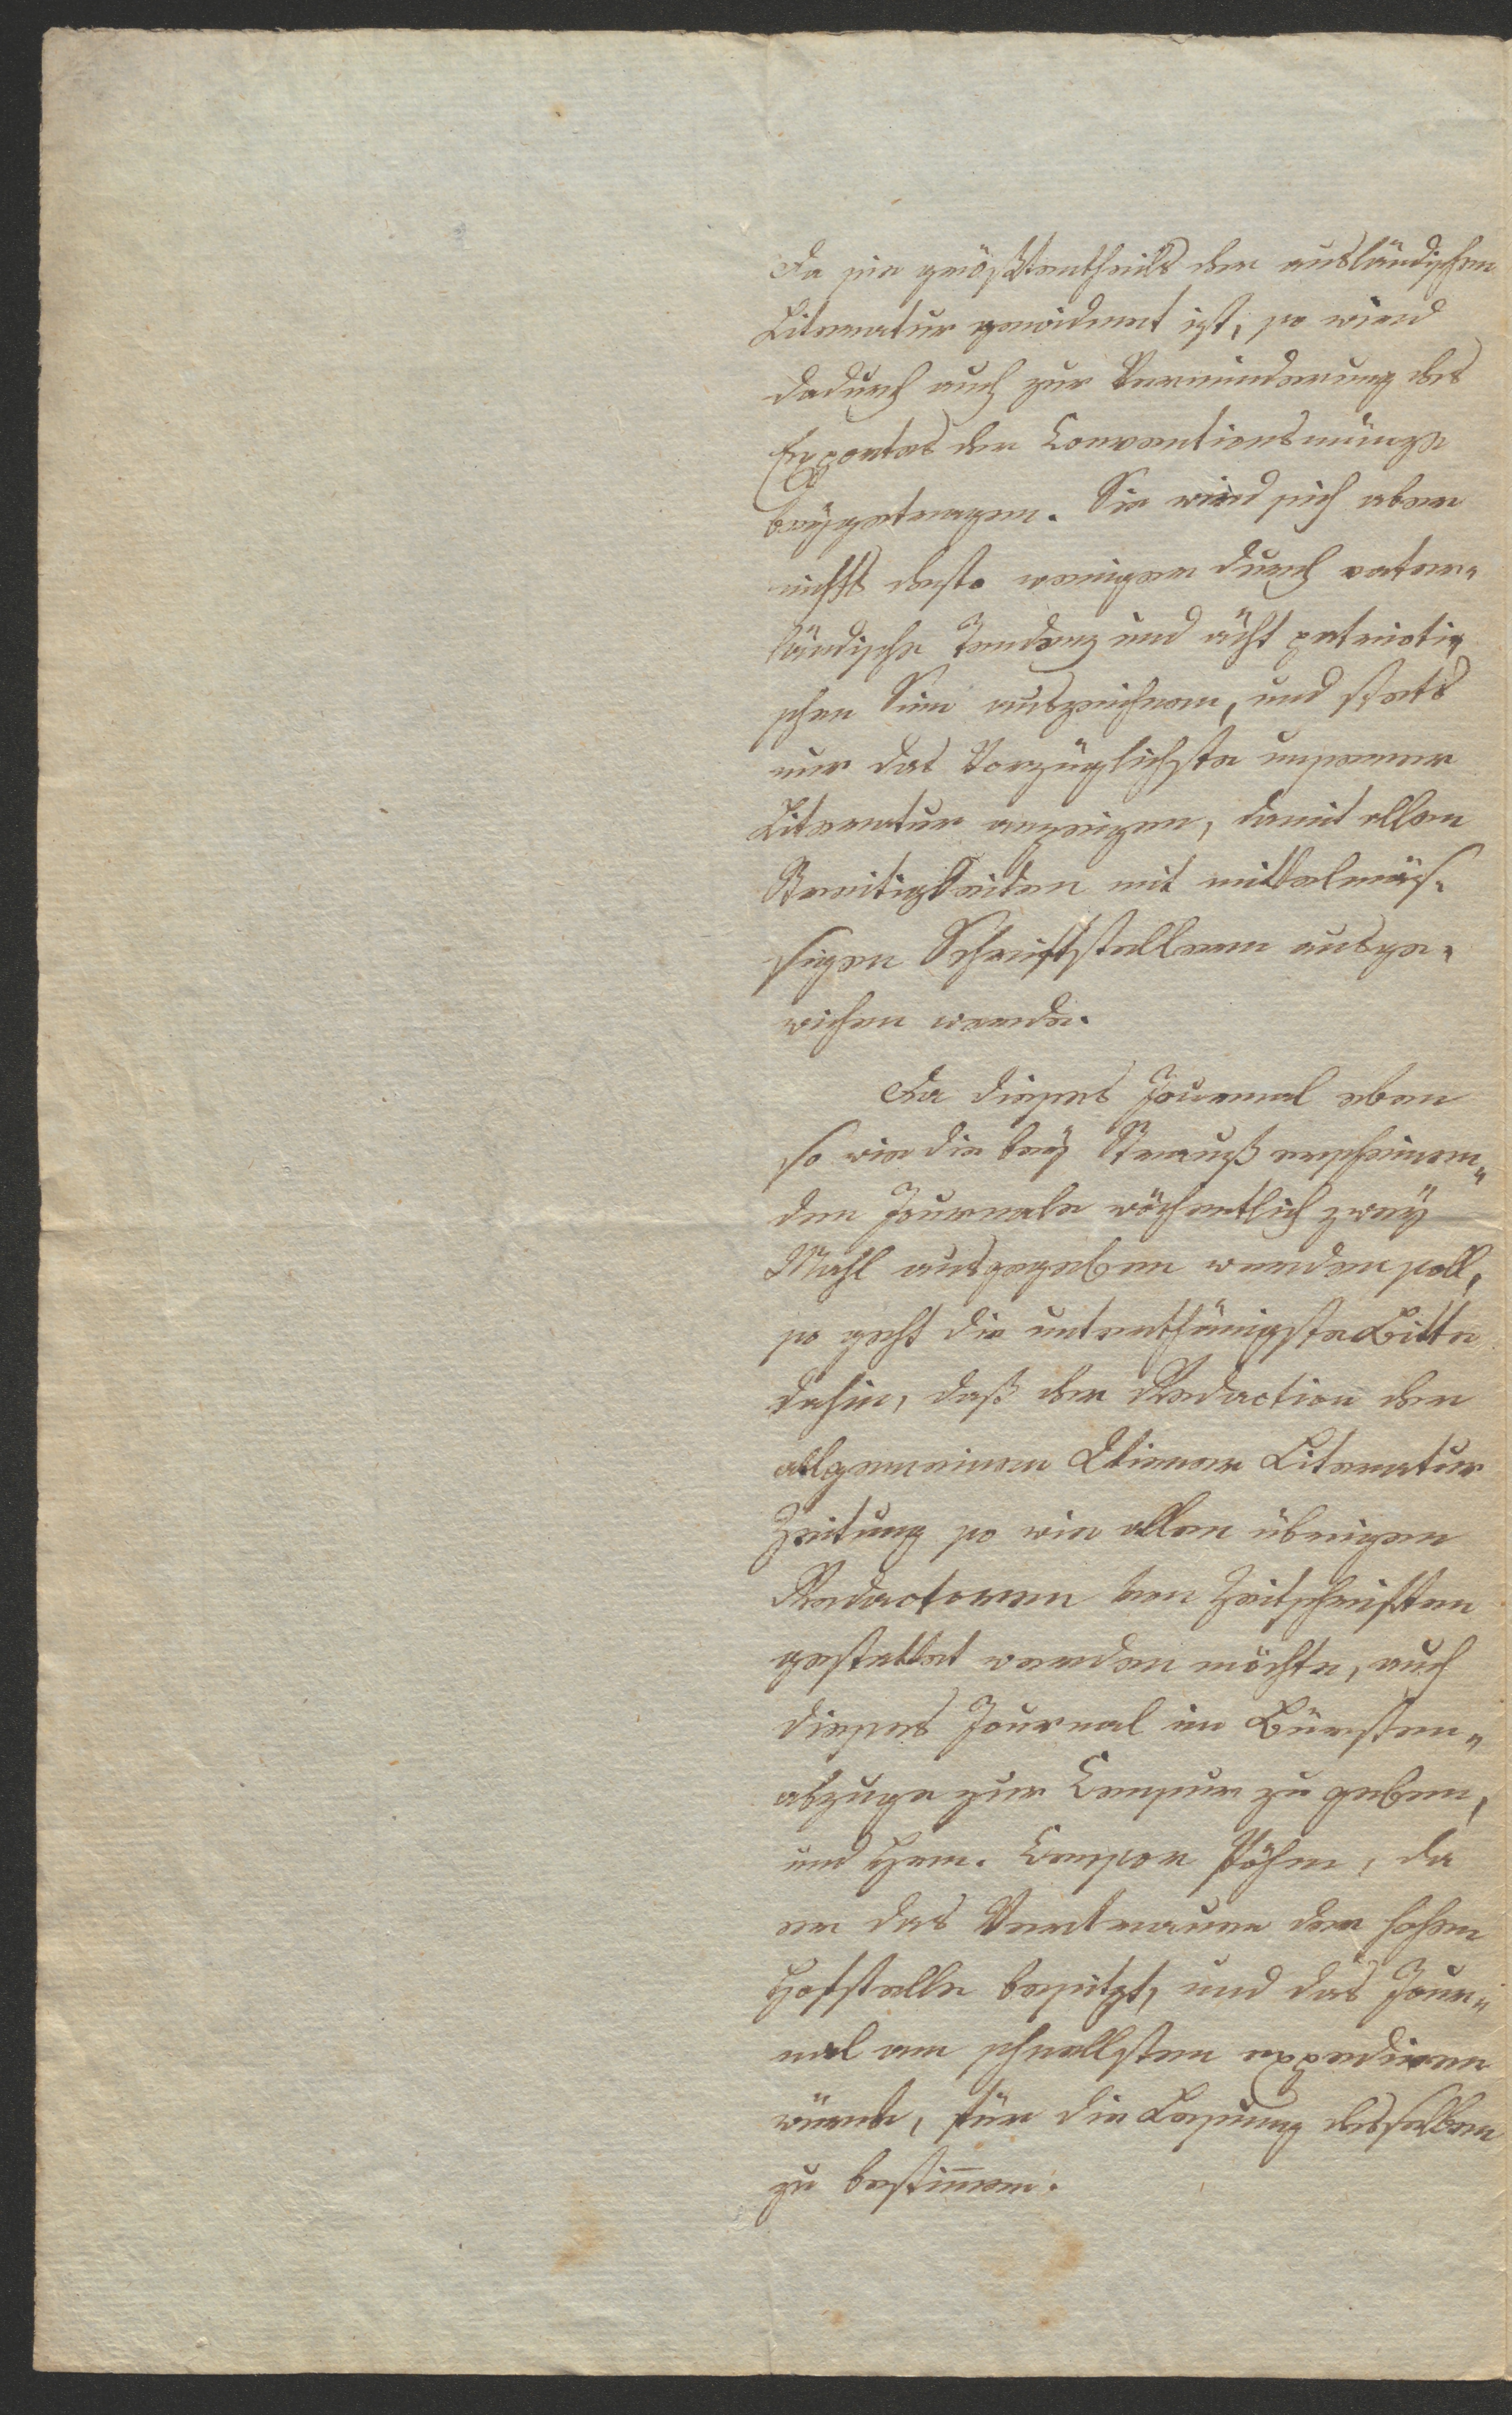 Da sie größtentheils der ausländischen
Literatur gewidmet ist, so wird
dadurch auch zur Verminderung des
Exportes der Conventionsmünze
beygetragen. Sie wird sich aber
nichts desto weniger durch vater-
ländische Tendenz und ächt patrioti-
schen Sinn auszeichnen, und stets
nur das Vorzüglichste unserer
Literatur anzeigen, damit allen
Streitigkeiten mit mittelmäs-
sigen Schriftstellern ausge-
wichen werde.
Da dieses Journal eben
so wie die bey Strauß erscheinen-
den Journale wöchentlich zwey
Mahl ausgegeben werden soll,
so geht die unterthänigste Bitte
dahin, daß der Redaction der
allgemeinen Wiener Literatur
Zeitung so wie allen übrigen
Redactoren von Zeitschriften
gestattet werden möchte, auch
dieses Journal im Bürsten-
abzuge zur Censur zu geben,
und Hrn. Censor, da
er das Vertrauen der hohen
Hofstelle besitzt, und das Jour-
nal am schnellsten expediren
würde, für die Lesung desselben
zu bestim̅en.